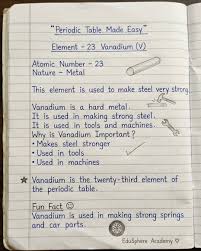 "Periodic Table Made Easy"
Element - 23 Vanadium (V)
Atomic Number - 23
Nature - Metal
This element is used to make steel very strong
Vanadium is a hard metal.
It is used in making strong steel.
It is used in tools and machines.
Why is Vanadium Important?
• Makes steel stronger
• Used in tools
• Used in machines
Vanadium is the twenty-third element of
the periodic table.
Fun Fact ☺
Vanadium is used in making strong springs
and car parts.
EduSphere Academy ♡